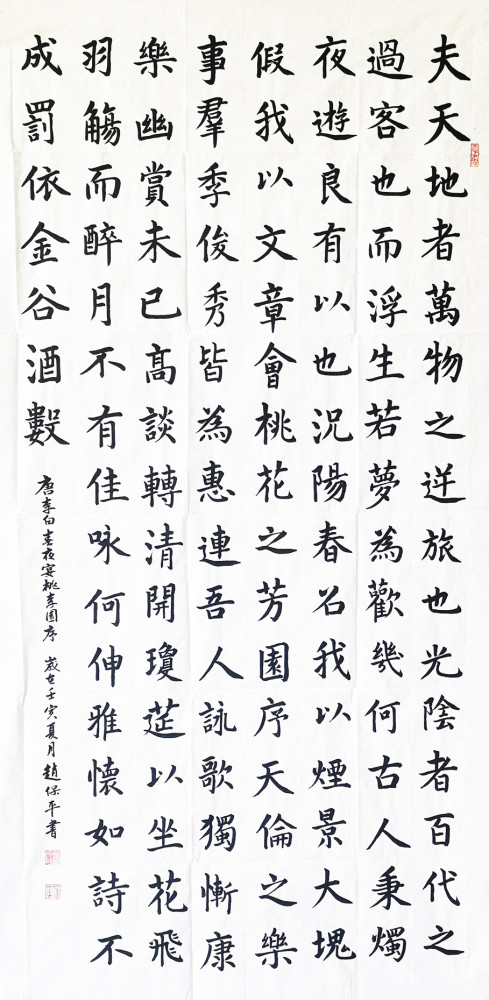 夫天地者萬物之逆旅也光陰者百代之
過客也而浮生若夢為歡幾何古人秉燭
夜遊良有以也況陽春召我以煙景大塊
假我以文章會桃花之芳園序天倫之樂
事羣季俊秀皆為惠連吾人詠歌獨慚康
樂幽賞未已高談轉清開瓊筵以坐花飛
羽觴而醉月不有佳咏何伸雅懷如詩不
成罰依金谷酒數
唐李白春夜宴桃李園序 歲在壬寅夏月趙保平書